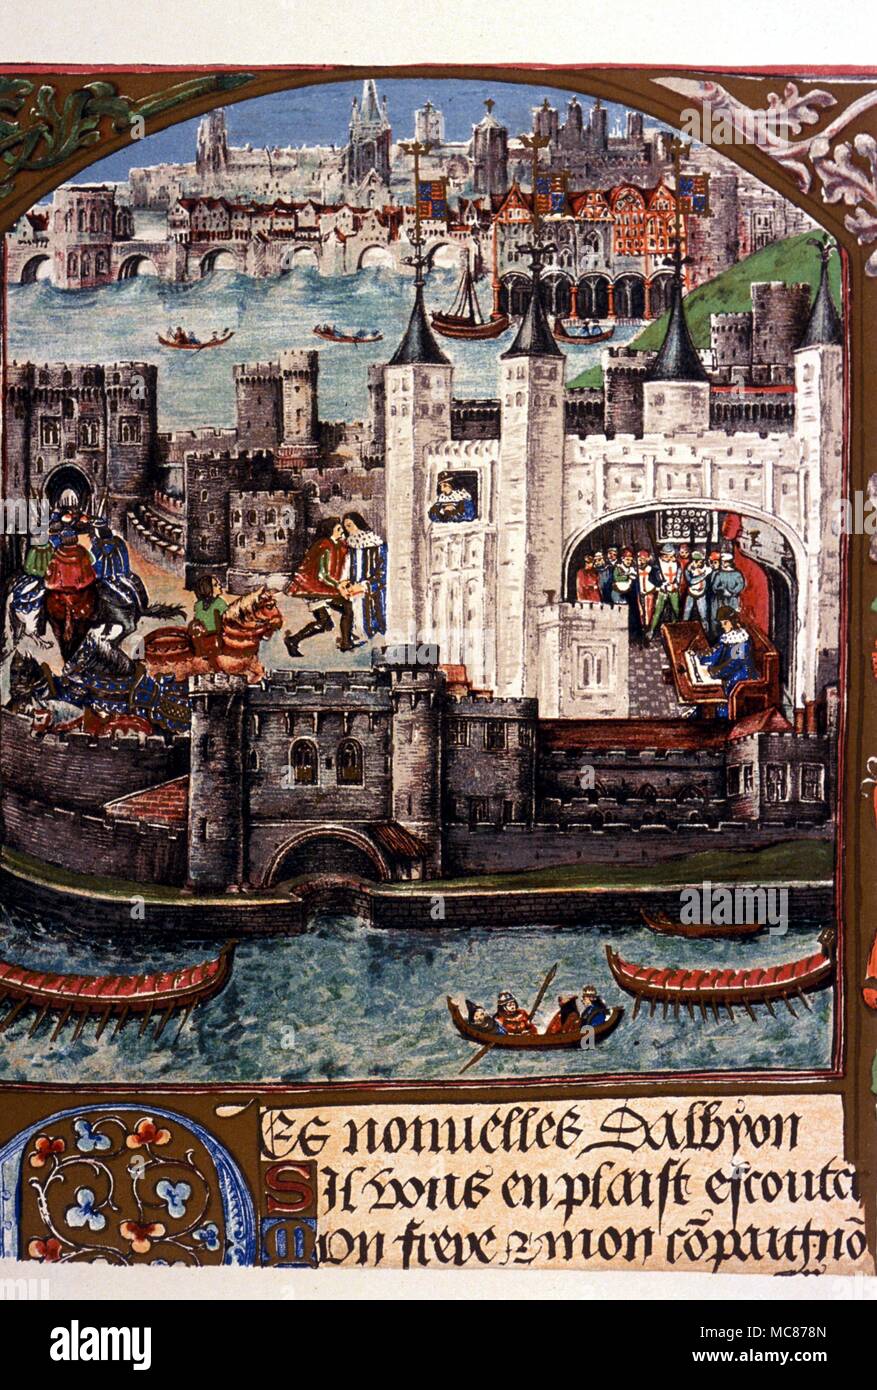 Es nouuelles Dalbyon
Sil vous en plaist escouter
Mon frere & mon cõpaignõ
alamy
Image ID: MC878N
www.alamy.com